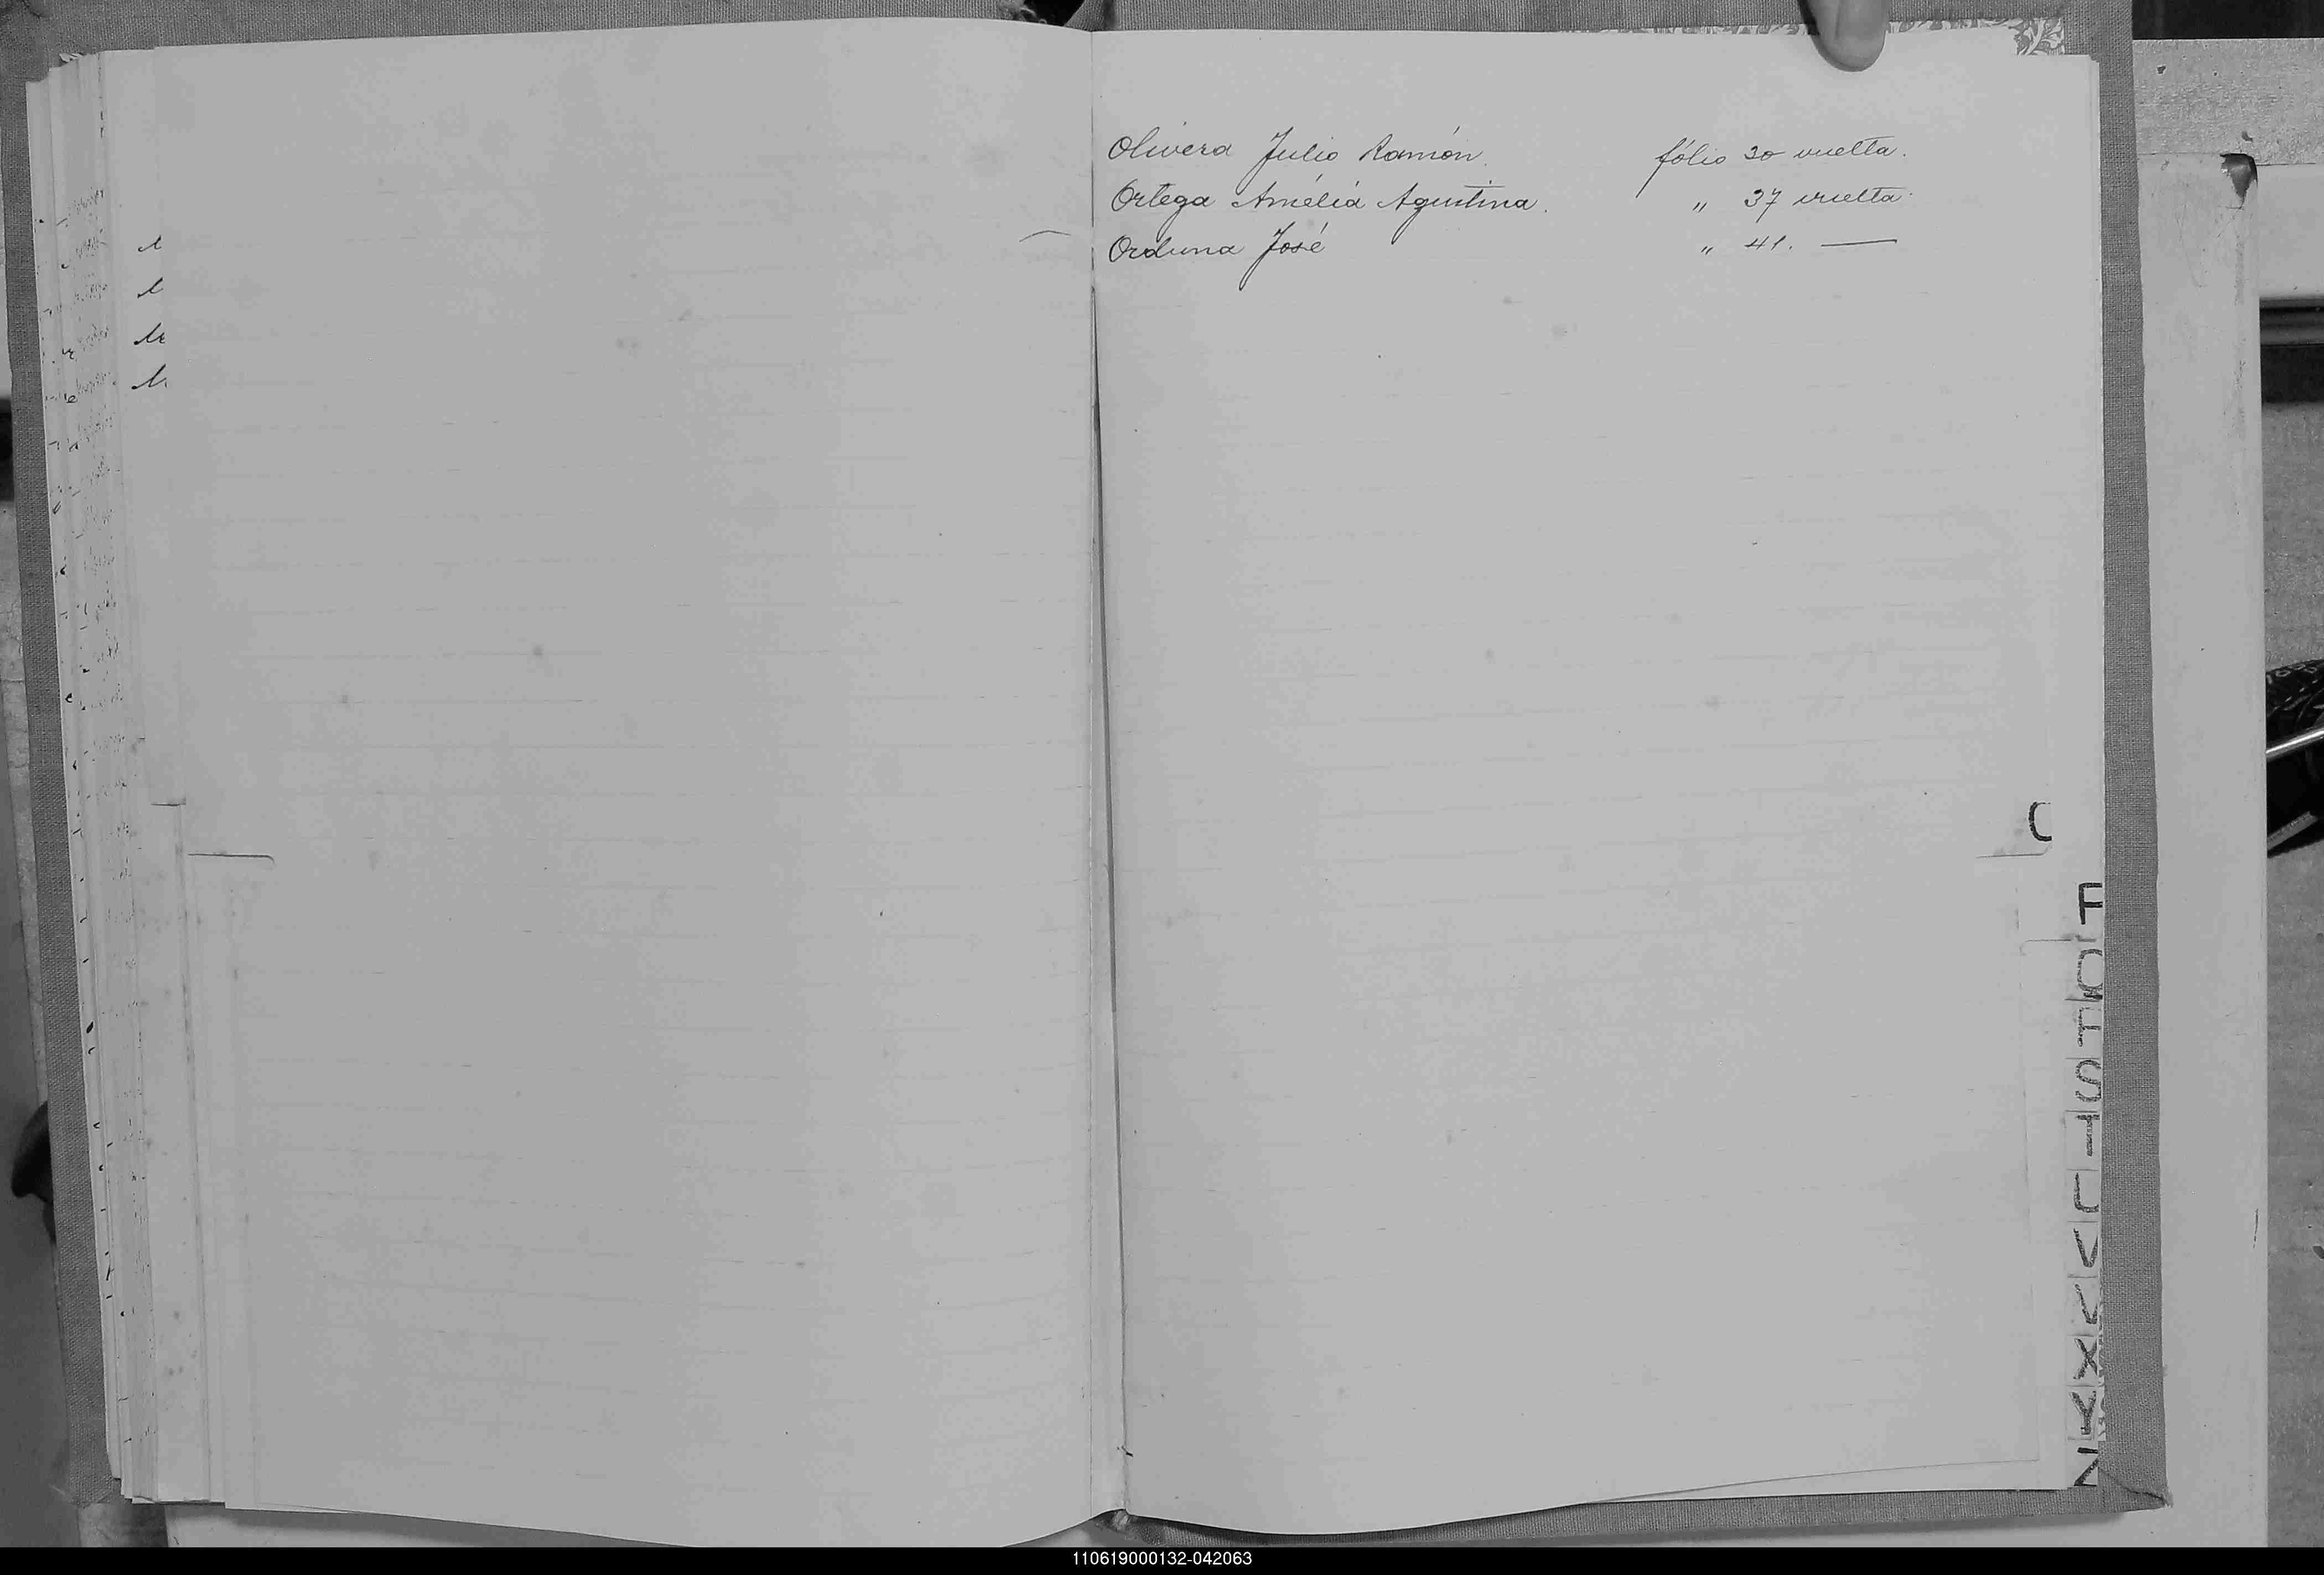 Olivera Julio Ramón. fólio 30 vuelta.
Ortega Amélia Agustina. " 37 vuelta.
Orduna José " 41. —
P
Q
R
S
T
U
V
X
Y
Z
110619000132-042063